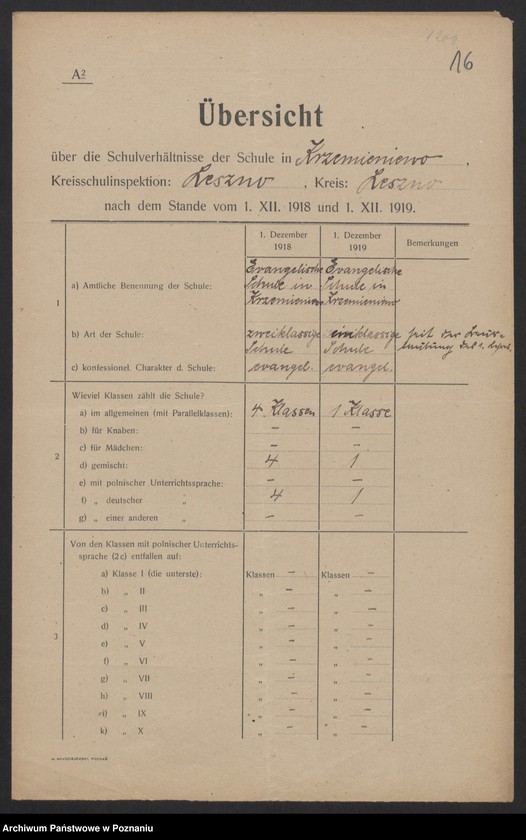 16
A2
Übersicht
über die Schulverhältnisse der Schule in Krzemieniewo.
Kreisschulinspektion: Leszno, Kreis: Leszno
nach dem Stande vom 1. XII. 1918 und 1. XII. 1919.
1. Dezember 1918 1. Dezember 1919 Bemerkungen
1
a) Amtliche Benennung der Schule: Evangelische Schule in Krzemieniewo Evangelische Schule in Krzemieniewo
b) Art der Schule: zweiklassige Schule einklassige Schule seit der
c) konfessionel. Charakter d. Schule: evangel. evangel.
2
Wieviel Klassen zählt die Schule?
a) im allgemeinen (mit Parallelklassen): 4 Klassen 1 Klasse
b) für Knaben: — —
c) für Mädchen: — —
d) gemischt: 4 1
e) mit polnischer Unterrichtssprache: — —
f) „ deutscher „ 4 1
g) „ einer anderen „ — —
3
Von den Klassen mit polnischer Unterrichts-
sprache (2c) entfallen auf:
a) Klasse I (die unterste): Klassen — Klassen —
b) „ II „ — „ —
c) „ III „ — „ —
d) „ IV „ — „ —
e) „ V „ — „ —
f) „ VI „ — „ —
g) „ VII „ — „ —
h) „ VIII „ — „ —
i) „ IX „ — „ —
k) „ X „ — „ —
Archiwum Państwowe w Poznaniu